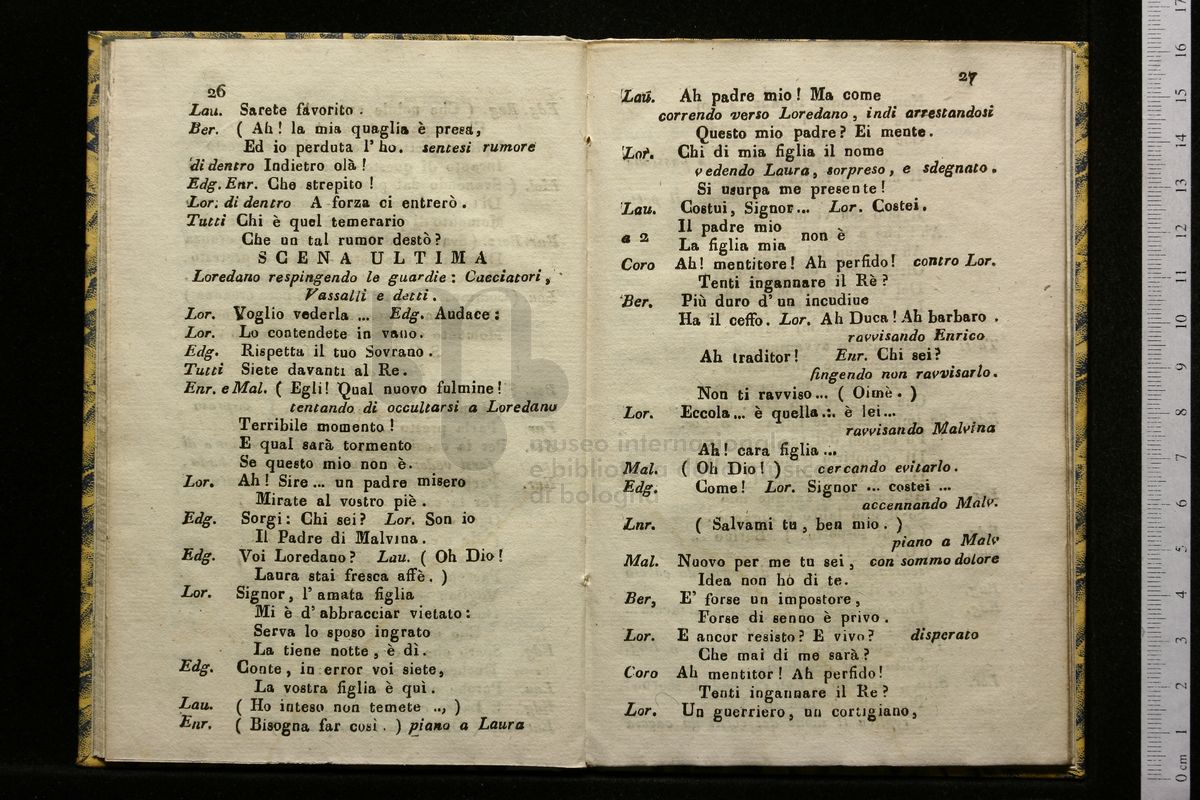 26
Lau. Sarete favorito.
Ber. ( Ah! la mia quaglia è presa,
Ed io perduta l'ho. sentesi rumore
di dentro Indietro olà!
Edg. Enr. Che strepito!
Lor. di dentro A forza ci entrerò.
Tutti Chi è quel temerario
Che un tal rumor destò?
SCENA ULTIMA
Loredano respingendo le guardie: Cacciatori,
Vassalli e detti.
Lor. Voglio vederla ... Edg. Audace:
Lor. Lo contendete in vano.
Edg. Rispetta il tuo Sovrano.
Tutti Siete davanti al Re.
Enr. e Mal. ( Egli! Qual nuovo fulmine!
tentando di occultarsi a Loredano
Terribile momento!
E qual sarà tormento
Se questo mio non è.
Lor. Ah! Sire ... un padre misero
Mirate al vostro piè.
Edg. Sorgi: Chi sei? Lor. Son io
Il Padre di Malvina.
Edg. Voi Loredano? Lau. ( Oh Dio!
Laura stai fresca affè. )
Lor. Signor, l'amata figlia
Mi è d'abbracciar vietato:
Serva lo sposo ingrato
La tiene notte, è dì.
Edg. Conte, in error voi siete,
La vostra figlia è quì.
Lau. ( Ho inteso non temete .., )
Enr. ( Bisogna far così. ) piano a Laura
27
Lau. Ah padre mio! Ma come
correndo verso Loredano, indi arrestandosi
Questo mio padre? Ei mente.
Lor. Chi di mia figlia il nome
vedendo Laura, sorpreso, e sdegnato.
Si usurpa me presente!
Lau. Costui, Signor... Lor. Costei.
a 2 Il padre mio non è
La figlia mia
Coro Ah! mentitore! Ah perfido! contro Lor.
Tenti ingannare il Rè?
Ber. Più duro d'un incudine
Ha il ceffo. Lor. Ah Duca! Ah barbaro.
ravvisando Enrico
Ah traditor! Enr. Chi sei?
fingendo non ravvisarlo.
Non ti ravviso... ( Oimè. )
Lor. Eccola... è quella.:. è lei...
ravvisando Malvina
Ah! cara figlia ...
Mal. ( Oh Dio! ) cercando evitarlo.
Edg. Come! Lor. Signor ... costei ...
accennando Malv.
Lnr. ( Salvami tu, ben mio. )
piano a Malv
Mal. Nuovo per me tu sei, con sommo dolore
Idea non hò di te.
Ber, E' forse un impostore,
Forse di senno è privo.
Lor. E ancor resisto? E vivo? disperato
Che mai di me sarà?
Coro Ah mentitor! Ah perfido!
Tenti ingannare il Re?
Lor. Un guerriero, un cortigiano,
museo internazionale
e biblioteca della musica
di bologna
0 cm 1 2 3 4 5 6 7 8 9 10 11 12 13 14 15 16 17